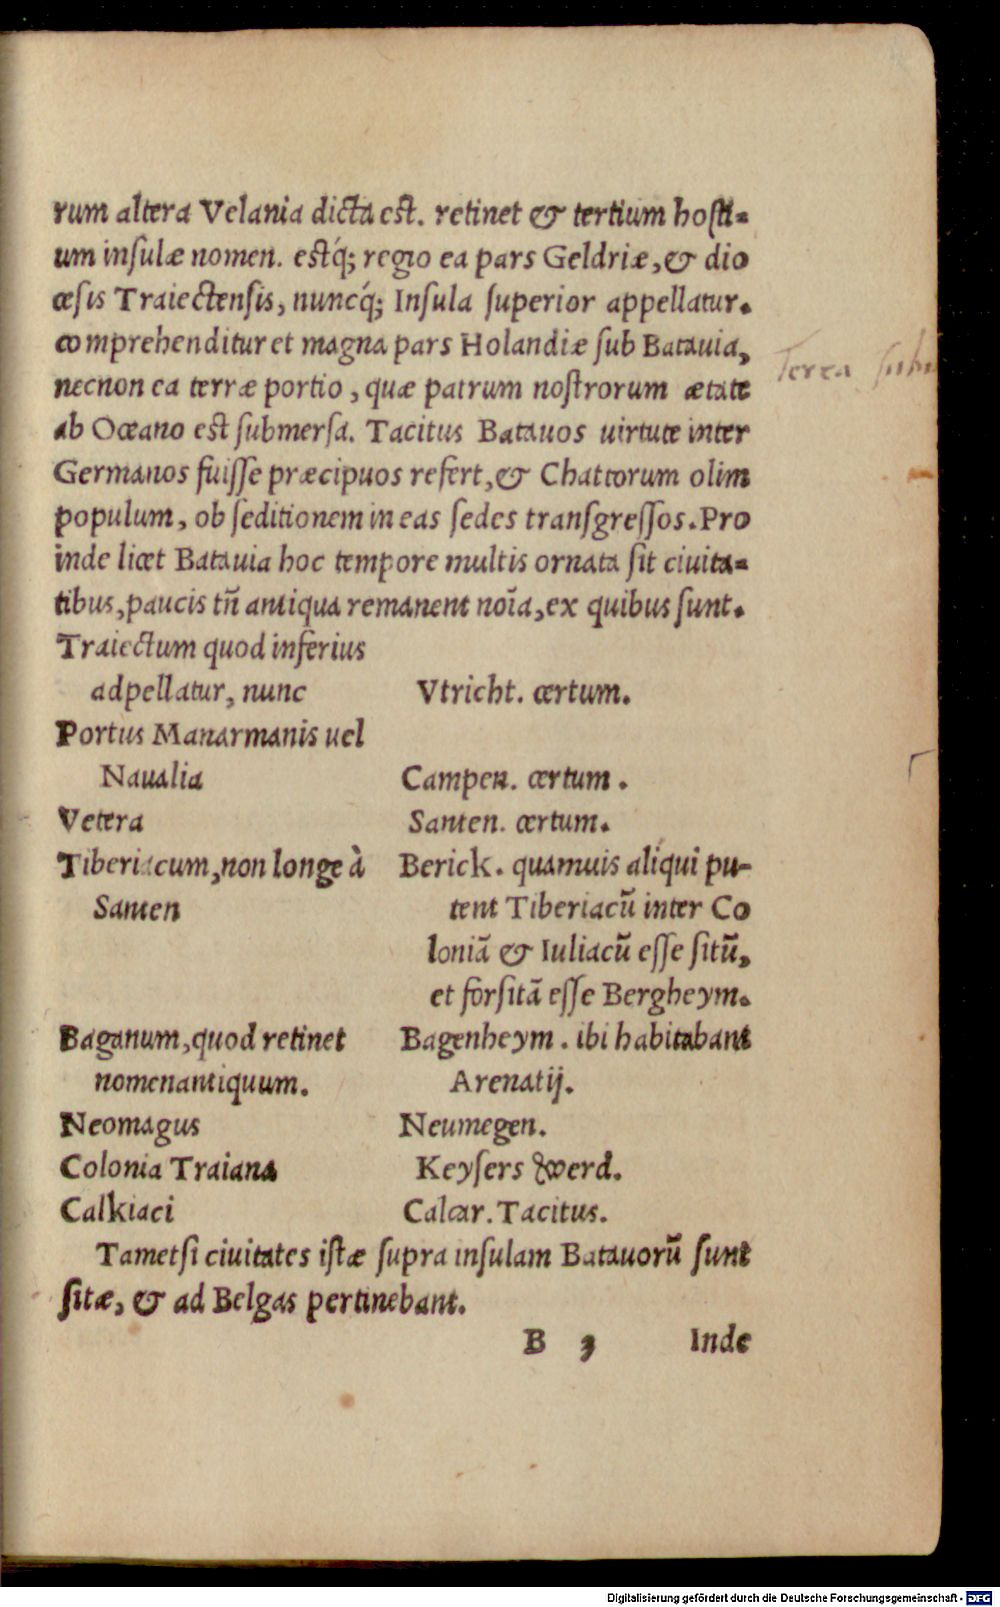 rum altera Velania dicta est. retinet & tertium hosti=
um insulæ nomen. estq́; regio ea pars Geldriæ, & dio
cesis Traiectensis, nuncq́; Insula superior appellatur.
comprehenditur et magna pars Holandiæ sub Batauia,
necnon ea terræ portio, quæ patrum nostrorum ætate
ab Oceano est submersa. Tacitus Batauos uirtute inter
Germanos fuisse præcipuos refert, & Chattorum olim
populum, ob seditionem in eas sedes transgressos. Pro
inde licet Batauia hoc tempore multis ornata sit ciuita=
tibus, paucis tñ antiqua remanent noīa, ex quibus sunt.
Traiectum quod inferius
adpellatur, nunc Vtricht. certum.
Portus Manarmanis uel
Naualia Campen. certum.
Vetera Santen. certum.
Tiberiacum, non longe à Berick. quamuis aliqui pu-
Santen tent Tiberiacũ inter Co
loniã & Iuliacũ esse sitũ,
et forsitã esse Bergheym.
Baganum, quod retinet Bagenheym. ibi habitabant
nomen antiquum. Arenatij.
Neomagus Neumegen.
Colonia Traiana Keysers Werd.
Calkiaci Calcar. Tacitus.
Tametsi ciuitates istæ supra insulam Batauorũ sunt
sitæ, & ad Belgas pertinebant.
B 3 Inde
Terra
Digitalisierung gefördert durch die Deutsche Forschungsgemeinschaft - DFG